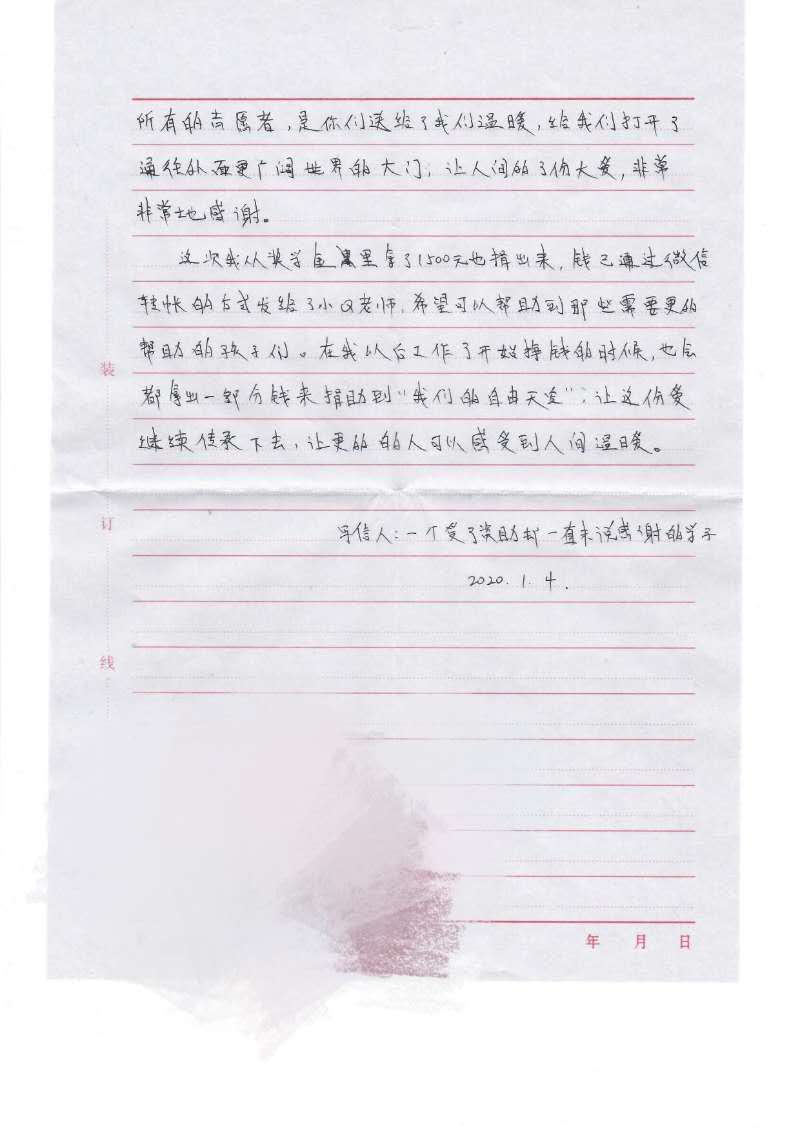 所有的志愿者，是你们送给了我们温暖，给我们打开了
通往外面更广阔世界的大门；让人间的了份大爱，非常
非常地感谢。
这次我从奖学金里拿了1500元也捐出来，钱已通过微信
转帐的方式发给了小Q老师，希望可以帮助到那些需要更的
帮助的孩子们。在我以后工作了开始挣钱的时候，也会
都拿出一部分钱来捐助到“我们的自由天空”；让这份爱
继续传承下去，让更的的人可以感受到人间温暖。
装
订
写信人：一个受了资助却一直未说感谢的学子
2020.1.4.
线
年 月 日